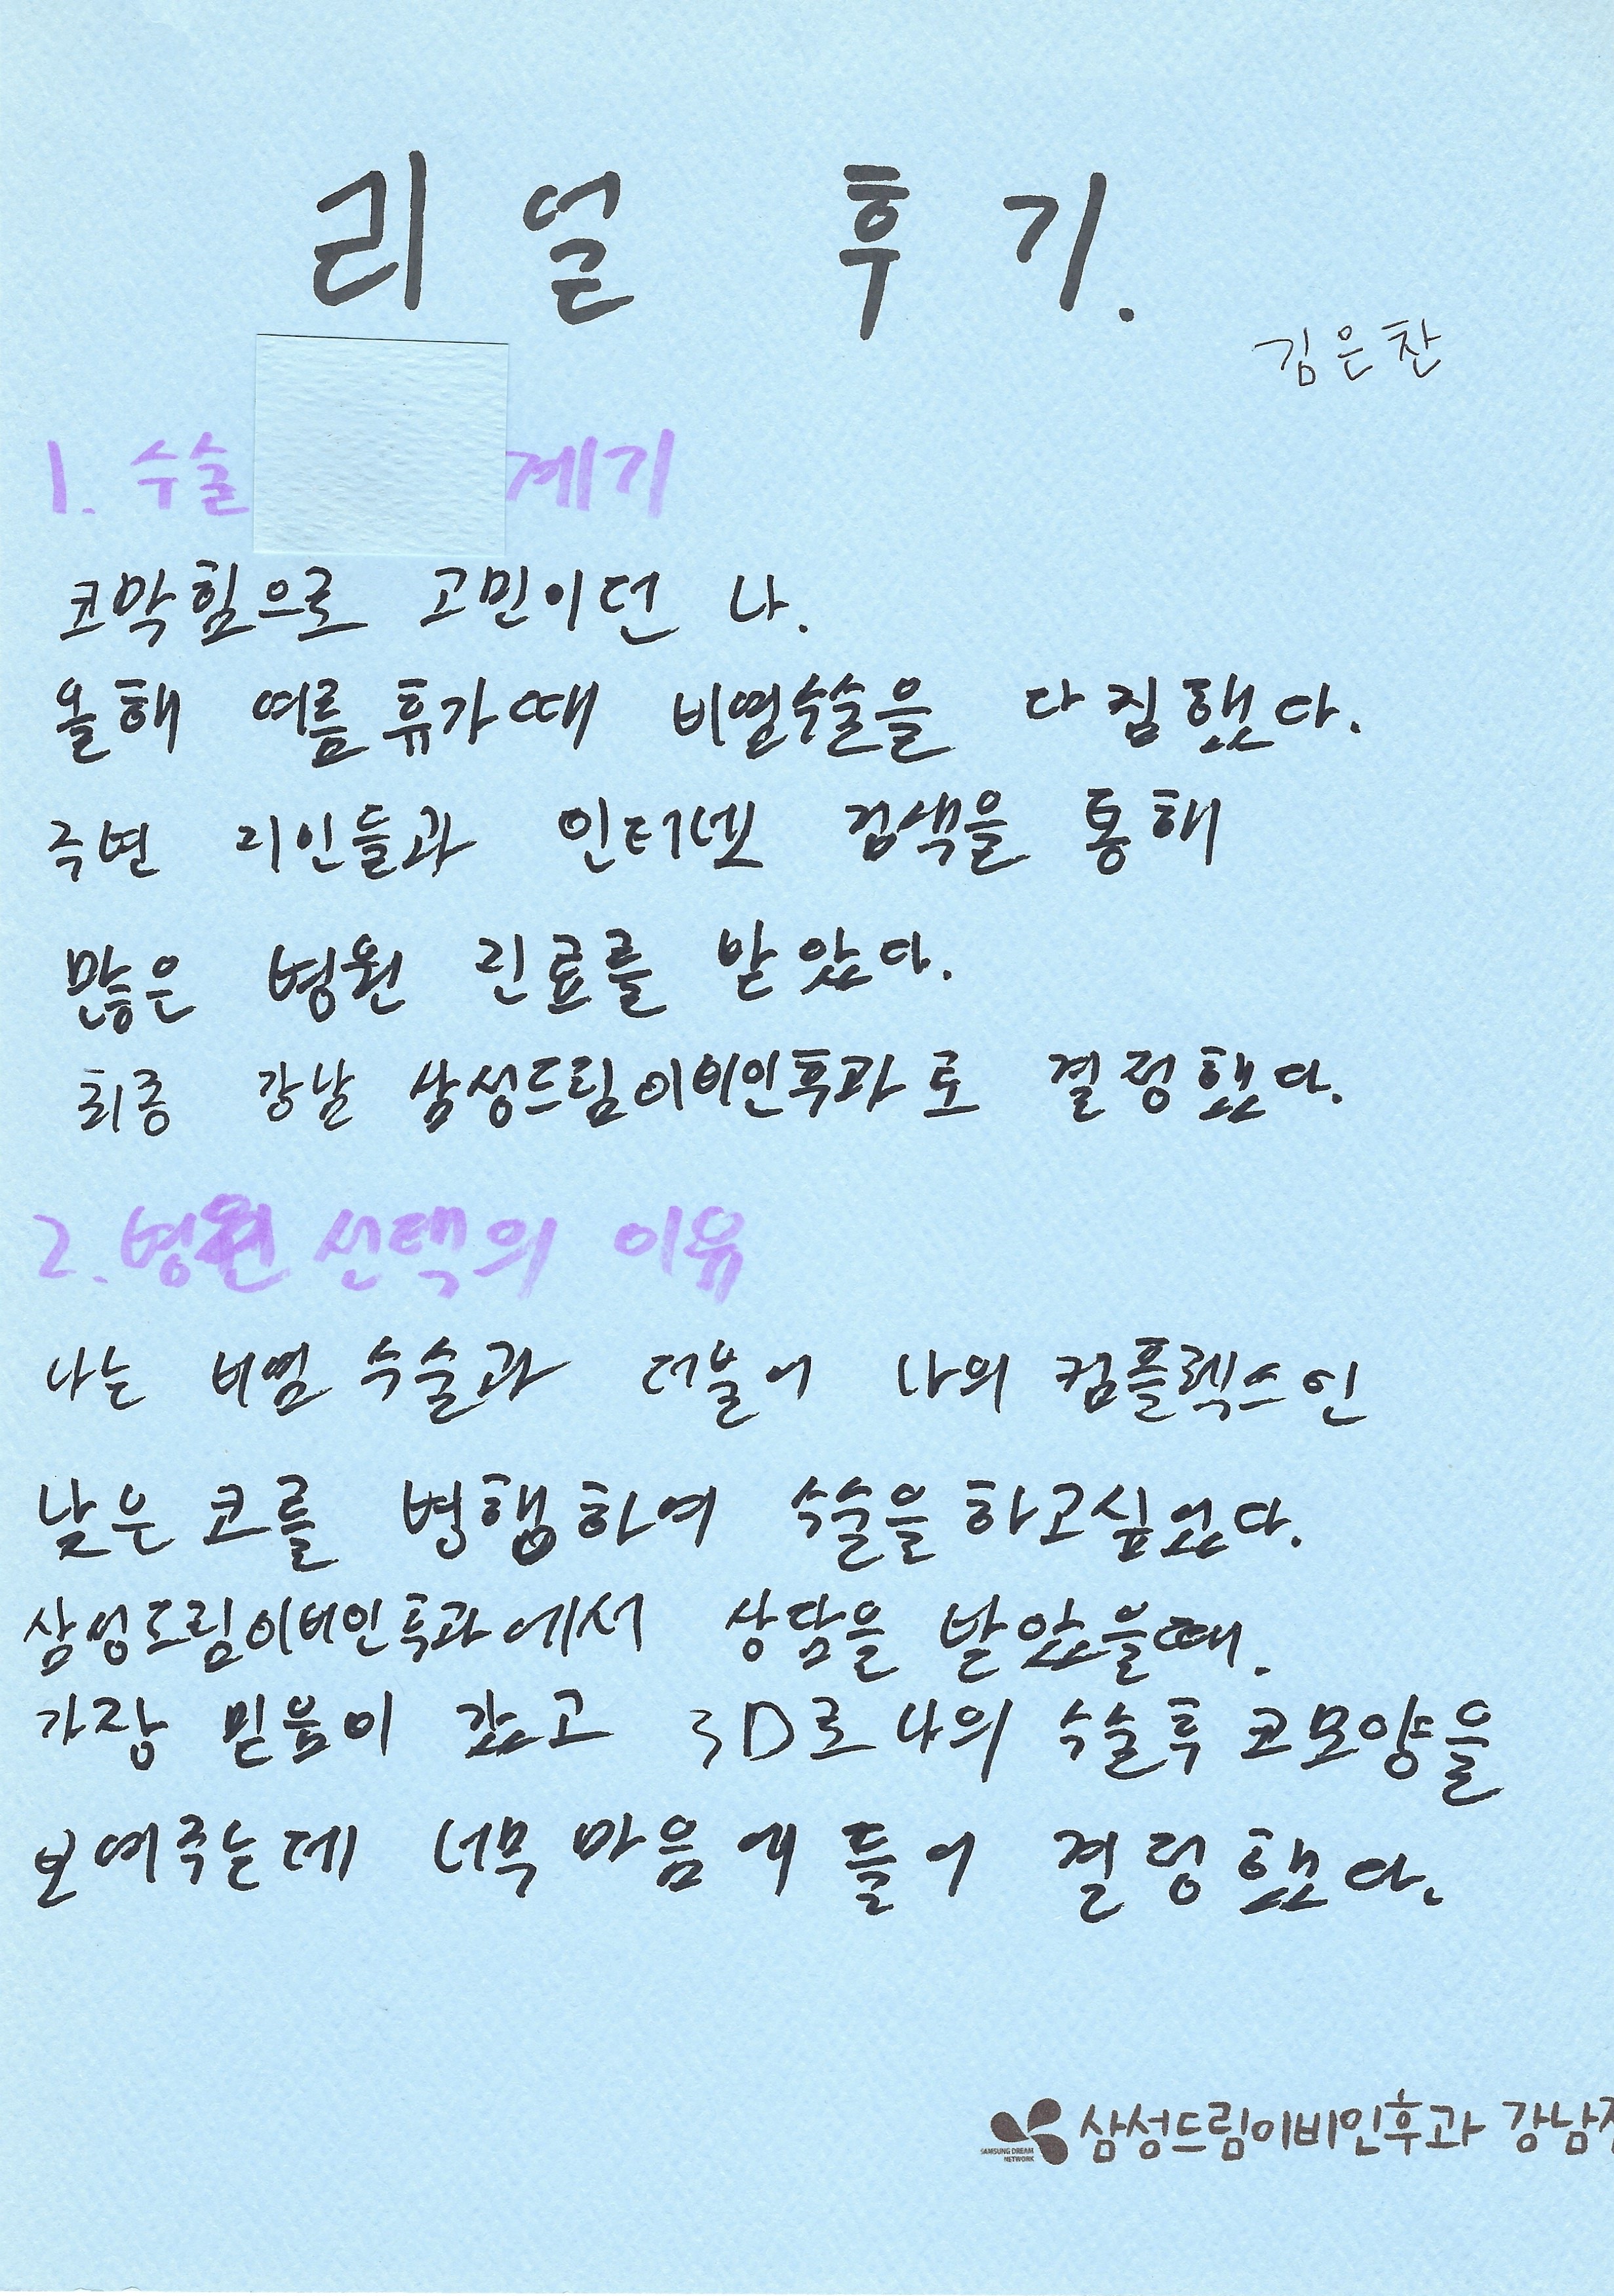 리얼 후기.
김은찬
1. 수술 계기
코막힘으로 고민이던 나.
올해 여름휴가때 비염수술을 다짐했다.
주변 지인들과 인터넷 검색을 통해
많은 병원 진료를 받았다.
최종 강남 삼성드림이비인후과로 결정했다.
2. 병원 선택의 이유
나는 비염 수술과 더불어 나의 컴플렉스인
낮은 코를 병행하여 수술을 하고싶었다.
삼성드림이비인후과에서 상담을 받았을때.
가장 믿음이 갔고 3D로 나의 수술후 코모양을
보여주는데 너무 마음에 들어 결정했다.
SAMSUNG DREAM NETWORK
삼성드림이비인후과 강남점